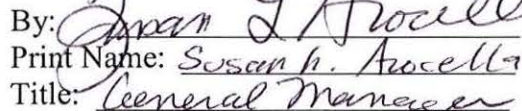 By: Susan L Arocell
Print Name: Susan h. Arocella
Title: General Manager